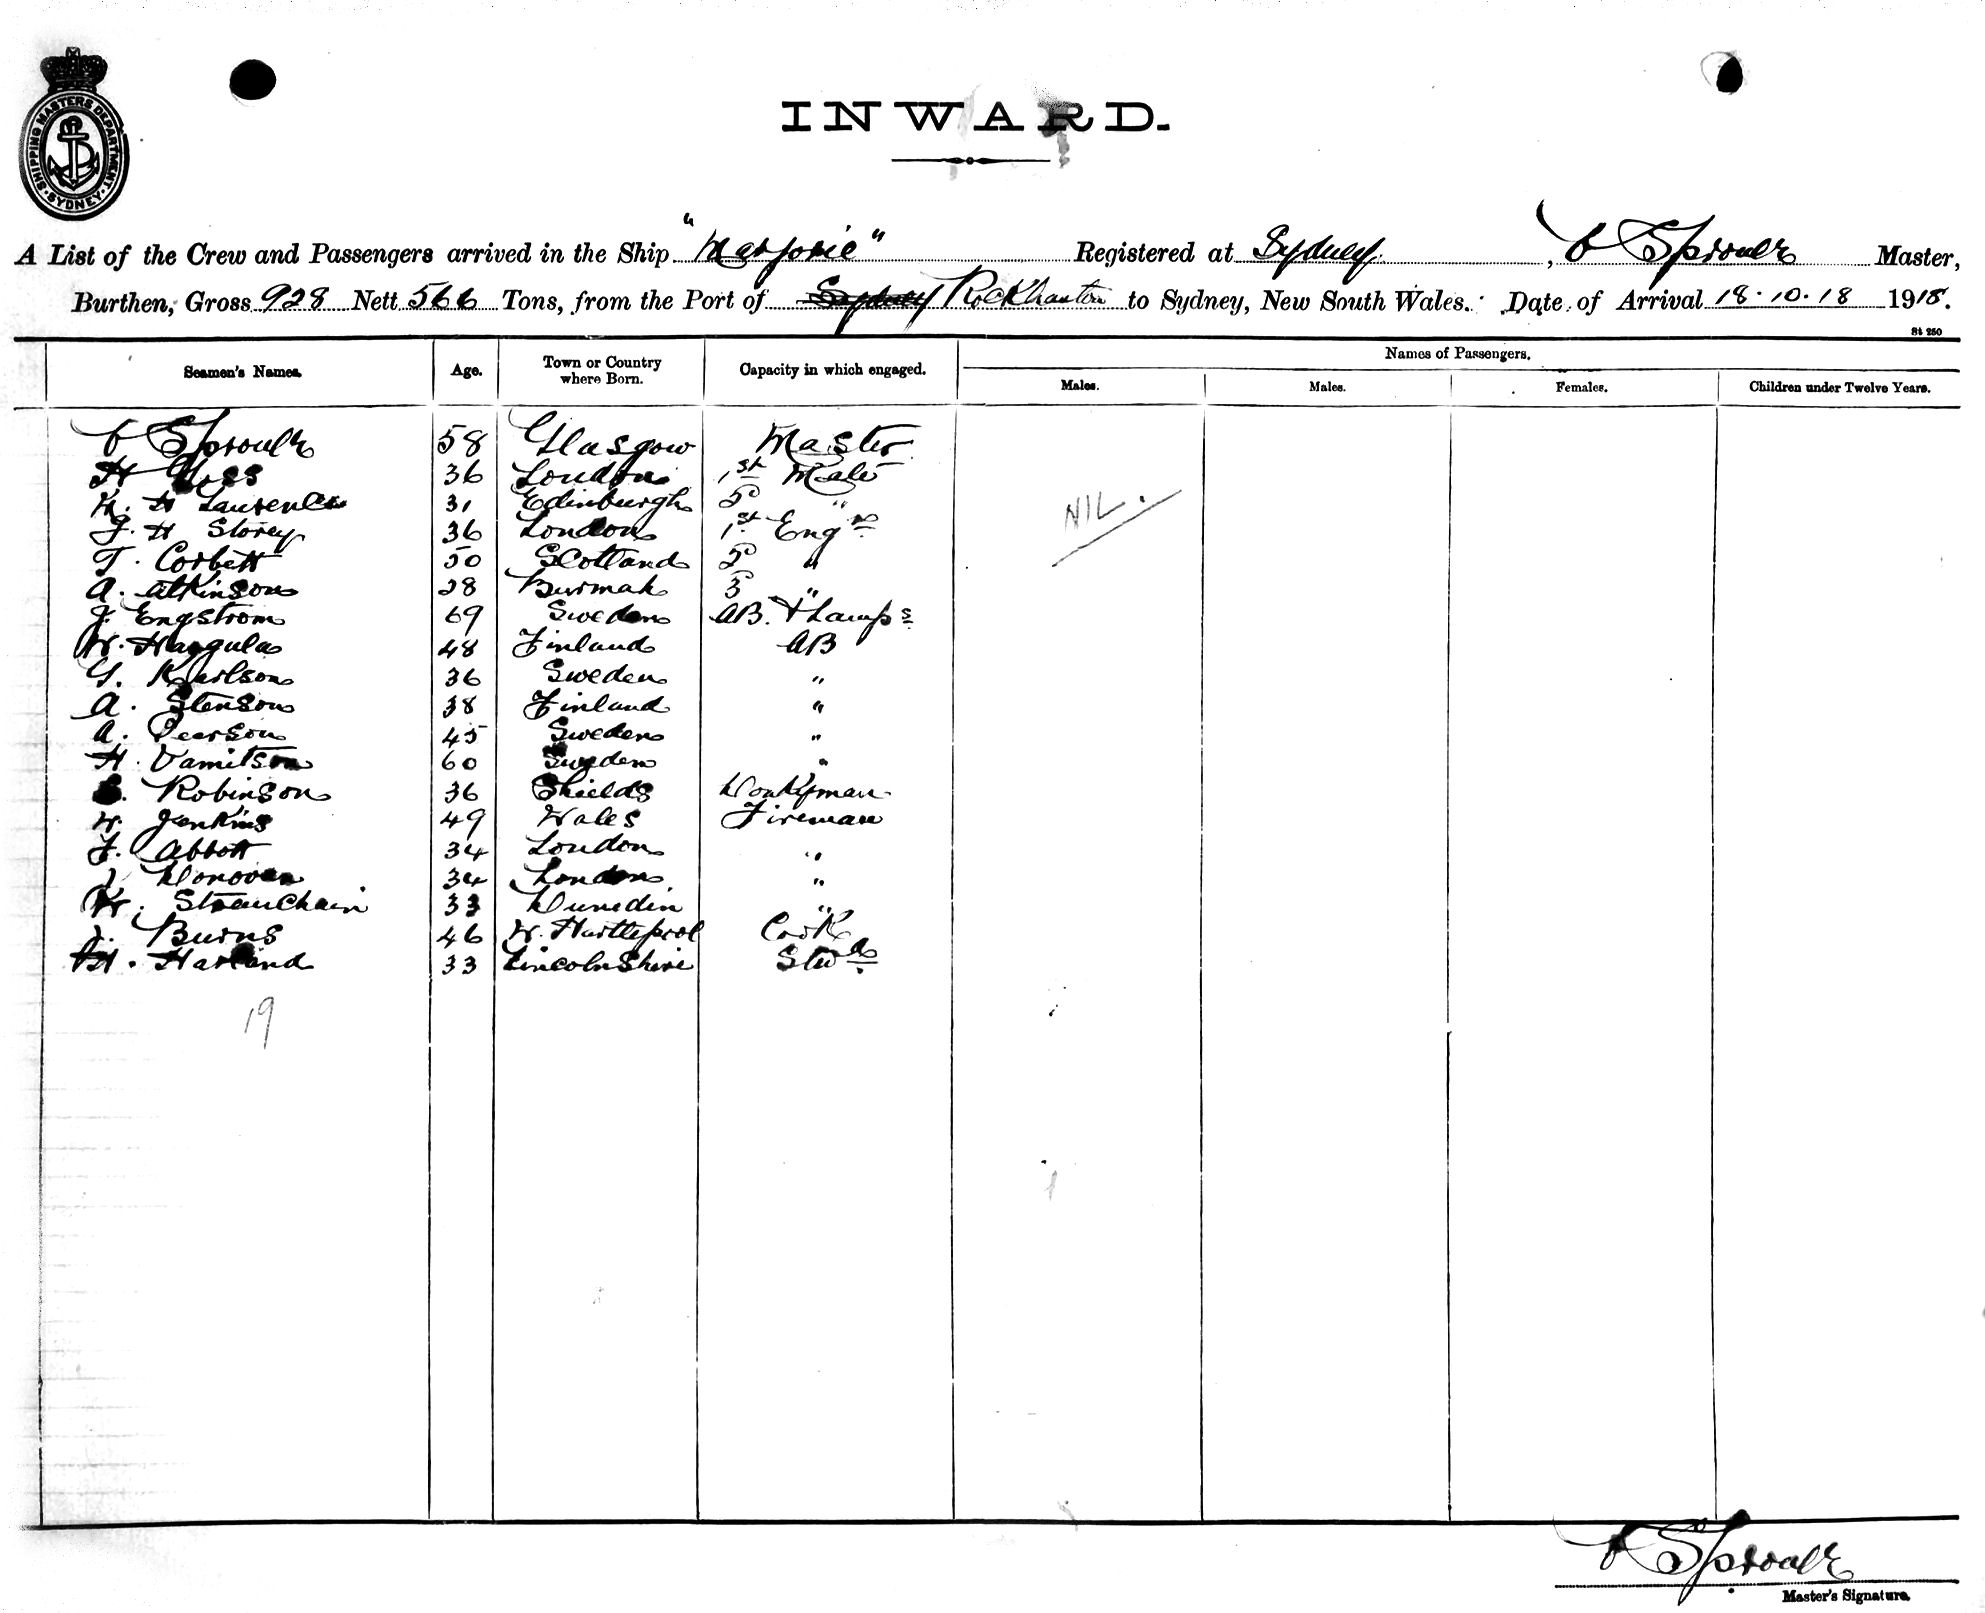 SHIPPING MASTERS DEPARTMENT
SYDNEY
INWARD.
A List of the Crew and Passengers arrived in the Ship "Marjorie" Registered at Sydney, C Sproule Master,
Burthen, Gross 928 Nett 566 Tons, from the Port of Sydney Rockhanton to Sydney, New South Wales. Date of Arrival 18.10.18 1918.
St 250
Seamen's Names. Age. Town or Country where Born. Capacity in which engaged. Names of Passengers.
Males. Males. Females. Children under Twelve Years.
C Sproule 58 Glasgow Master
H 36 London 1st Mate
K. H Laurence 31 Edinburgh 2 "
J. H Storey 36 London 1st Engr
T. Corbett 50 Scotland 2 "
A. Atkinson 28 Burmah 3 "
J. Engstrom 69 Sweden AB. & Lamps
W. Hargula 48 Finland AB
G. Karlson 36 Sweden "
A. Stenson 38 Finland "
A. Pearson 45 Sweden "
H. 60 Sweden "
Robinson 36 Shields Donkyman
W. Jenkins 49 Wales Fireman
F. Abbott 34 London "
J Donovan 34 London "
W. Strauchain 33 Dunedin "
J. Burns 46 W. Hartlepool Cook
H. Harland 33 Lincolnshire Stwd
NIL.
19
C Sproule
Master's Signature.